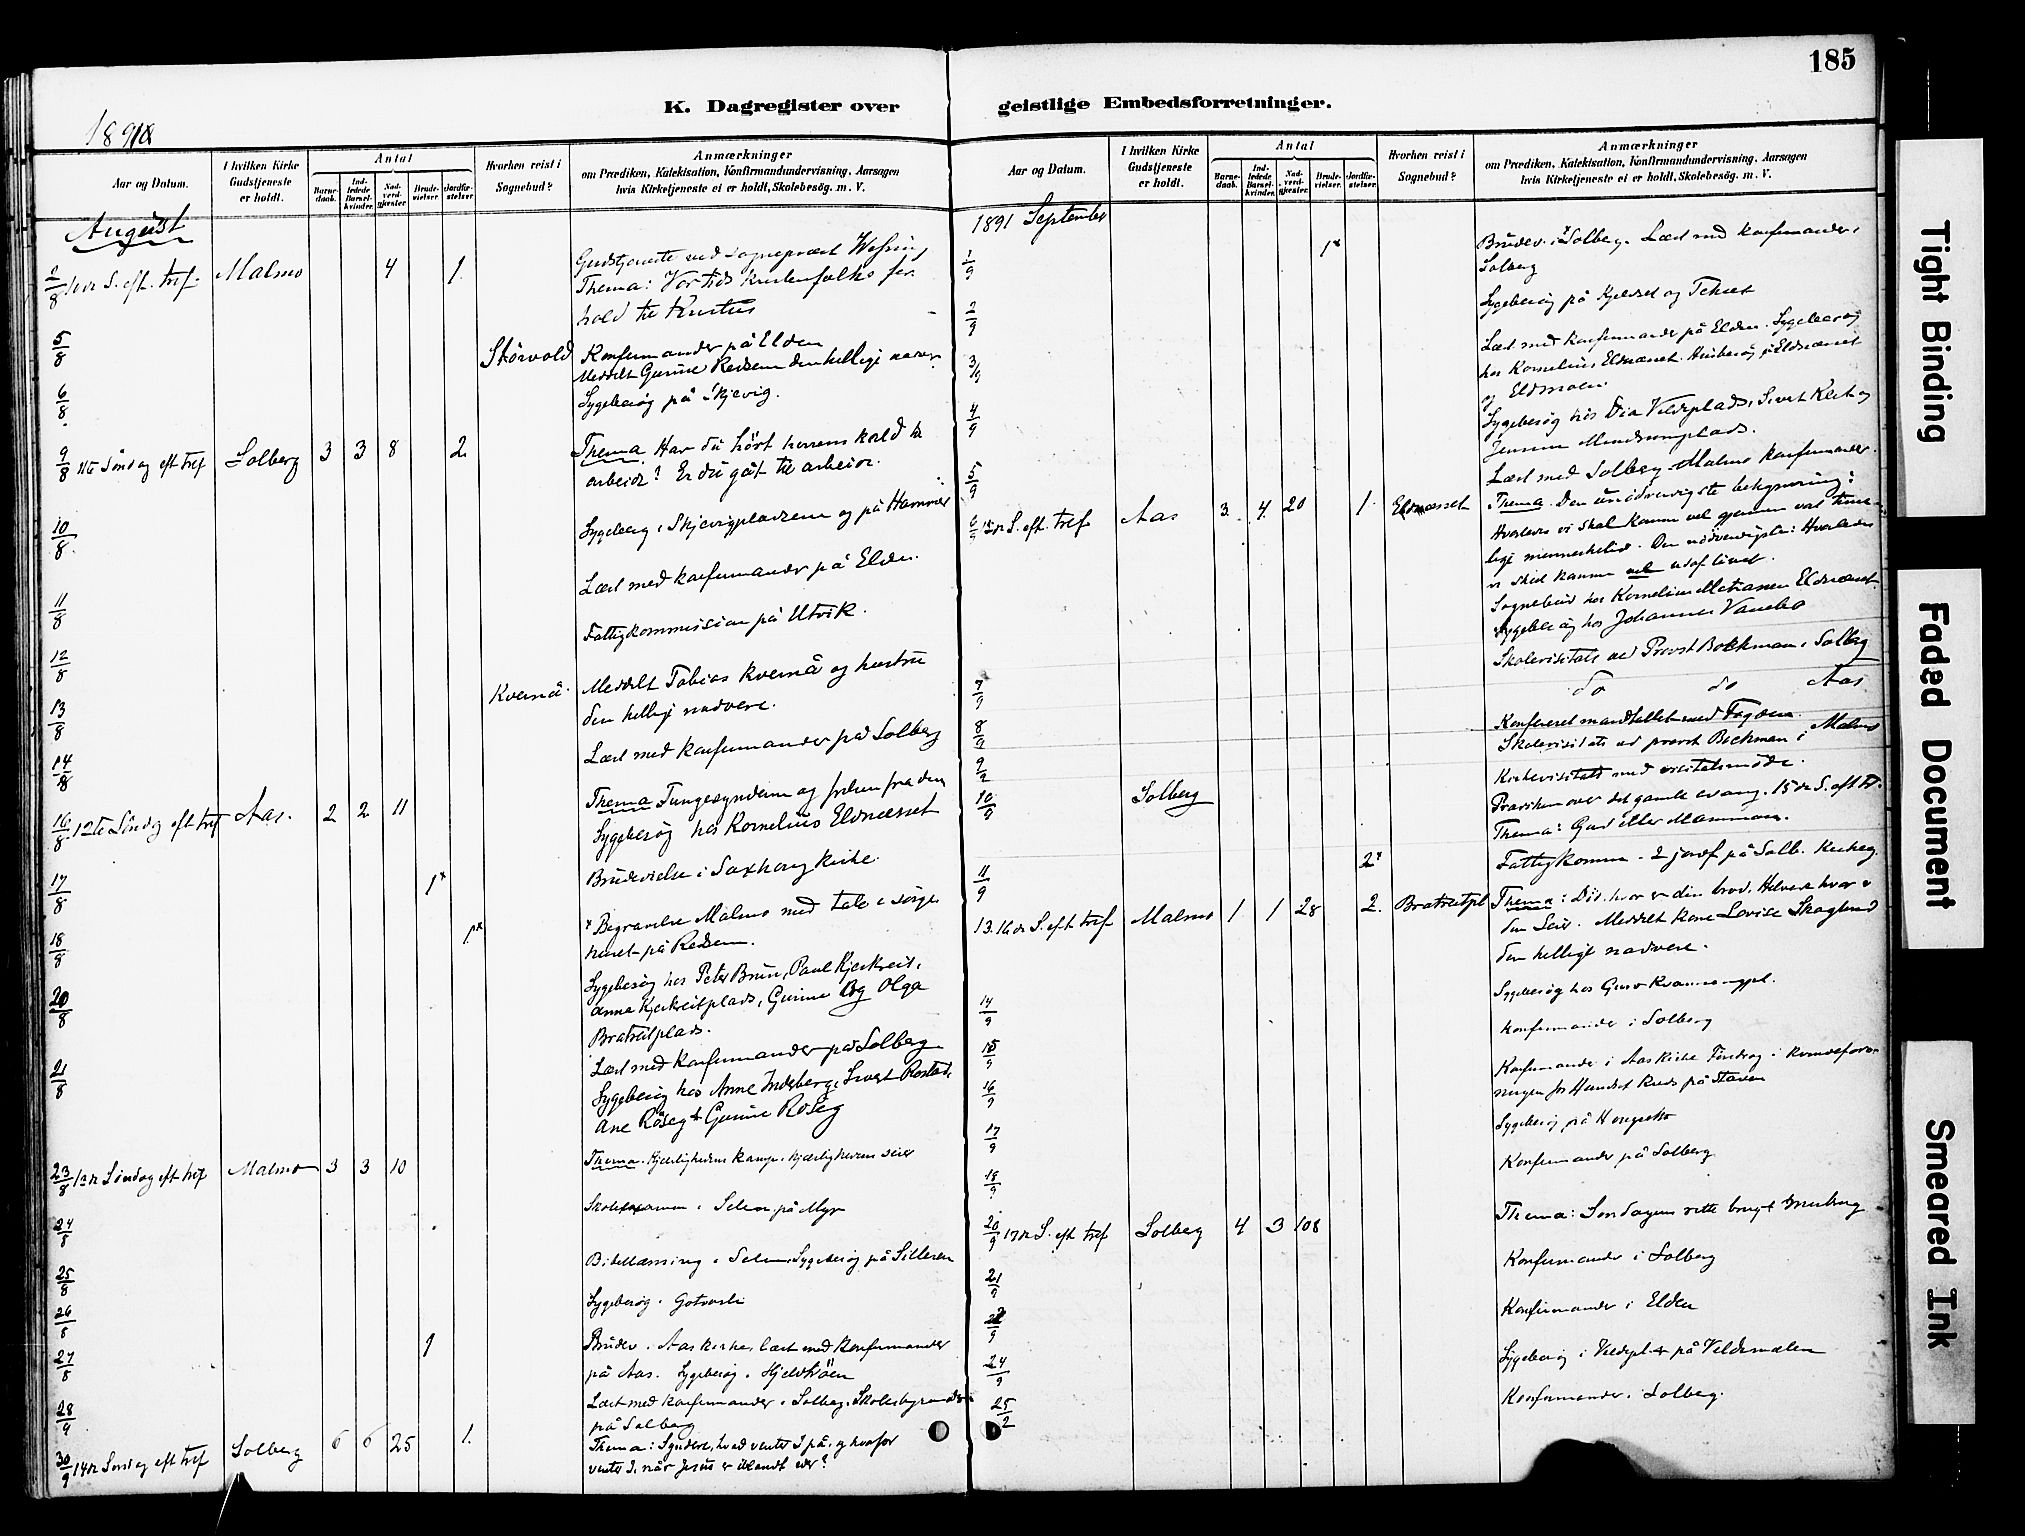 185
K. Dagregister over geistlige Embedsforretninger.
1891
Aar og Datum.
I hvilken Kirke Gudstjeneste er holdt.
Antal
Barnedaab.
Indledede Barselkvinder.
Nadverdgjester
Brudevielser.
Jordfæstelser
Hvorhen reist i Sognebud?
Anmærkninger
om Prædiken, Katekisation, Konfirmandundervisning, Aarsagen
hvis Kirketjeneste ei er holdt, Skolebesög. m. V.
August
2/8 10de S. eft. tref. Malmo 4 1. Gudstjeneste ved sognepræst
Thema: Vor tids kristenfolks for
hold til Kristus
5/8 Störvold Konfirmander på Elden
Meddelt Gurine Redsem den hellige nadver
6/8 Sygebesög på Skjevig.
9/8 11te Söndag eft tref Solberg 3 3 8 2. Thema. Har du hört herrens kald til
arbeide? Er du gåt til arbeide.
10/8. Sygebesög i Skjevigpladsene og på Hammer
11/8 Læst med konfirmander på Elden.
12/8 Fattigkommission på Utvik.
13/8 Kvernå. Meddelt Tobias Kvernå og hustru
den hellige nadvere.
14/8 Læst med konfirmander på Solberg
16/8 12te Söndag eft tref Aas. 2 2 11 Thema Tungesyndene og frelsen fra dem
Sygebesög hos Kornelius Eldnesset
17/8 1x Brudevielse i Saxhaug kirke.
18/8 1x x Begravelse Malmo med tale i sörge
huset på Redsem.
20/8 Sygebesög hos Peter Brun, Paul Kjerkreit,
Anna Kjerkreitplads, Gurine og Olga
Bratreitplads.
21/8 Læst med konfirmander på Solberg
Sygebesög hos Anne Indberg, Sivert Rostad,
Ane Röseg + Gurine Röseg
23/8 13de Söndag eft tref Malmo 3 3 10 Thema. Kjærlighedens kamp. Kjærlighedens seier
24/8 Skoleexamen i Selem på Myr
25/8 Bibellæsning i Selem. Sygebesög på Silleren
26/8 Sygebesög.
27/8 1 Brudev. Aas kirke, læst med konfirmander
på Aas. Sygebesög.
28/9 Læst med konfirmander i Solberg.
på Solberg
30/9 14de Söndag eft tref Solberg 6 6 25 1. Thema: Syndere, hvad venter I på, og hvorfor
venter I, når Jesus er iblandt eder?
Aar og Datum.
I hvilken Kirke Gudstjeneste er holdt.
Antal
Barnedaab.
Indledede Barselkvinder.
Nadverdgjester
Brudevielser.
Jordfæstelser
Hvorhen reist i Sognebud?
Anmærkninger
om Prædiken, Katekisation, Konfirmandundervisning, Aarsagen
hvis Kirketjeneste ei er holdt, Skolebesög. m. V.
1891 September
1/9 1x Brudev. i Solberg. Læst med konfirmander i
Solberg
2/9 Sygebesög på Kjelset og
3/9 Læst med konfirmander på Elden. Sygebesög
hos Kornelius Eldnesset. Husbesög i Eldnesset
og Eldmoen.
4/9 Sygebesög hos Dia Veldeplads, Sivert
Jensine
5/9 Læst med Solberg Malmo konfirmander.
6/9 15de S. eft. tref. Aas 3. 4. 20 1. Eldnesset Thema. Den unödvendigste bekymring:
Hvorledes vi skal komme vel gjennem vort time-
lige menneskeliv. Den nödvendigste: Hvorledes
vi skal komme vel ud af livet.
Sognebud hos Kornelius Eldnesset
Sygebesög hos Johannes
Skolevisitats ved Provst Bockman i Solberg
7/9 do do Aas
8/9 Konfereret mandtallet med Fogden.
Skolevisitats ved provst Bockman i Malmo
9/9 Kirkevisitats med visitatsmöde.
10/9 Solberg Prædiken over det gamle evang. 15de S. eft Tr.
Thema: Gud eller Mammon.
11/9 2x Fattigkomm. 2 jordf på Solb. kirkeg.
13. 16de S. eft tref Malmo 1 1 28 2. Bratreitpl Thema: Död, hvor er din brod, Helvede hvor er
din Seier. Meddelt kone Lovise Skaglund
den hellige nadvere.
14/9 Sygebesög hos
15/9 Konfirmander i Solberg
16/9 Konfirmander i Aas kirke Foredrag i kvindefore-
ningen
17/9 Sygebesög på
18/9 Konfirmander på Solberg
20/9 17de S. eft tref Solberg 4 3 108 Thema: Söndagens rette brug + misbrug
21/9 Konfirmander i Solberg
22/9 Konfirmander i Elden
24/9 Sygebesög i Veldepl + på Veldemelen
25/2 Konfirmander i Solberg.
Tight Binding
Faded Document
Smeared Ink